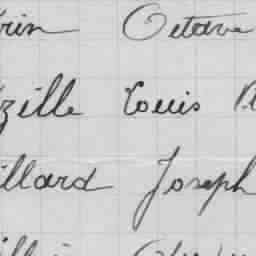 rin Octave
zille Louis
illard Joseph